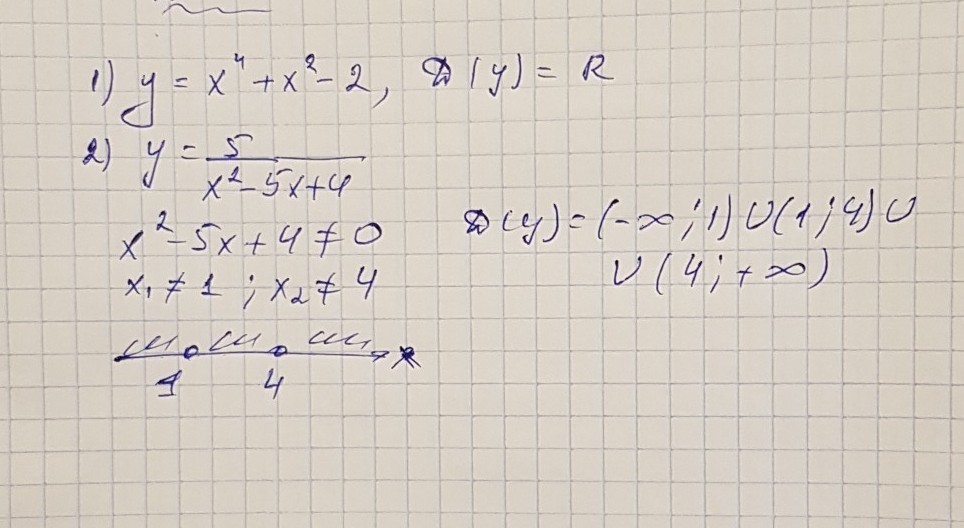 1) y = x⁴ + x² - 2, D(y) = R
2) y = 5/(x² - 5x + 4)
x² - 5x + 4 ≠ 0
x₁ ≠ 1 ; x₂ ≠ 4
D(y) = (-∞; 1) ∪ (1; 4) ∪
∪ (4; +∞)
1 4 x